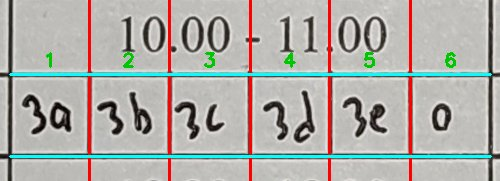 10.00 - 11.00
1 2 3 4 5 6
3a 3b 3c 3d 3e 0